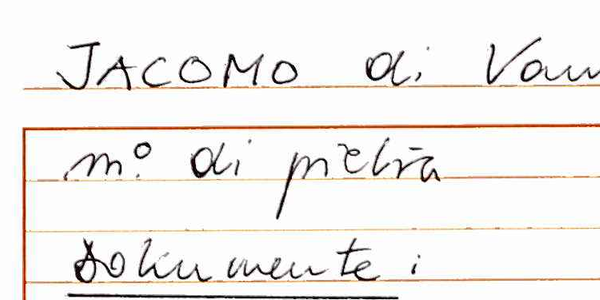 JACOMO di
m.º di pietra
Dokumente: